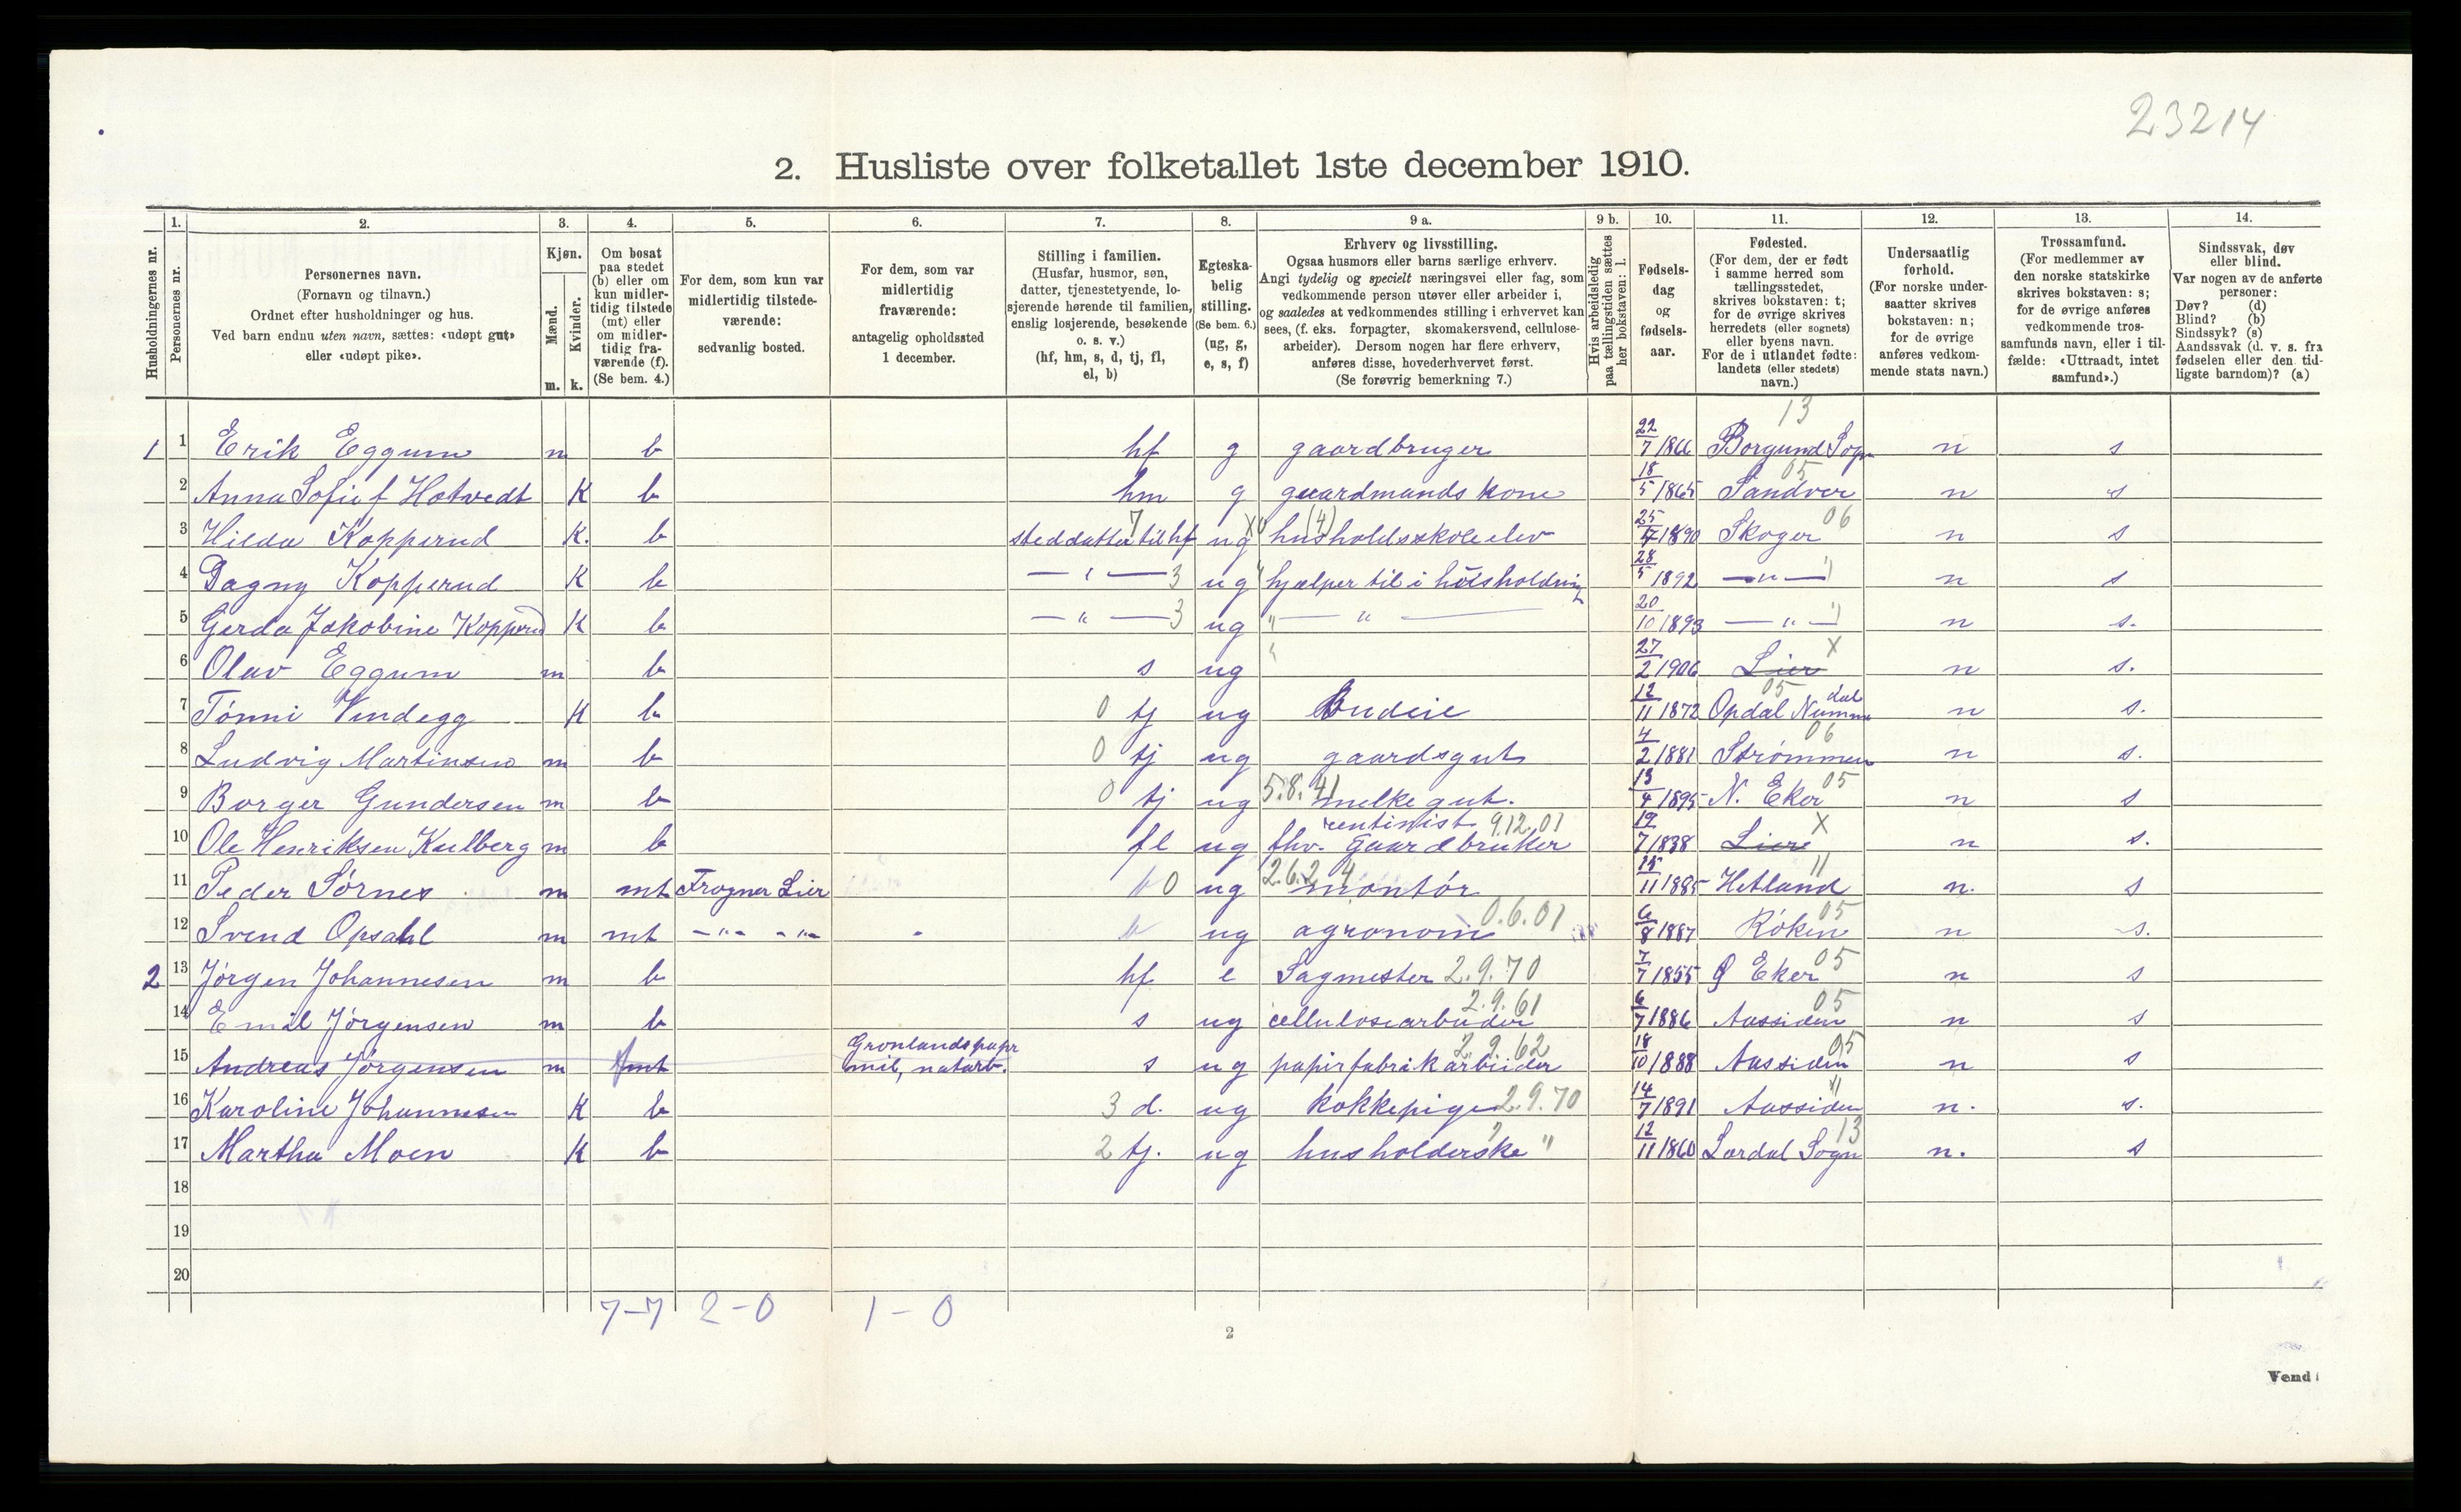 23214
2. Husliste over folketallet 1ste december 1910.
1. 2. 3. 4. 5. 6. 7. 8. 9 a. 9 b. 10. 11. 12. 13. 14.
Husholdningernes nr.
Personernes nr.
Personernes navn.
(Fornavn og tilnavn.)
Ordnet efter husholdninger og hus.
Ved barn endnu uten navn, sættes: «udøpt gut»
eller «udøpt pike».
Kjøn.
Mænd.
Kvinder.
m. k.
Om bosat
paa stedet
(b) eller om
kun midler-
tidig tilstede
(mt) eller
om midler-
tidig fra-
værende (f).
(Se bem. 4.)
For dem, som kun var
midlertidig tilstede-
værende:
sedvanlig bosted.
For dem, som var
midlertidig
fraværende:
antagelig opholdssted
1 december.
Stilling i familien.
(Husfar, husmor, søn,
datter, tjenestetyende, lo-
sjerende hørende til familien,
enslig losjerende, besøkende
o. s. v.)
(hf, hm, s, d, tj, fl,
el, b)
Egteska-
belig
stilling.
(Se bem. 6.)
(ug, g,
e, s, f)
Erhverv og livsstilling.
Ogsaa husmors eller barns særlige erhverv.
Angi tydelig og specielt næringsvei eller fag, som
vedkommende person utøver eller arbeider i,
og saaledes at vedkommendes stilling i erhvervet kan
sees, (f. eks. forpagter, skomakersvend, cellulose-
arbeider). Dersom nogen har flere erhverv,
anføres disse, hovederhvervet først.
(Se forøvrig bemerkning 7.)
Hvis arbeidsledig
paa tællingstiden sættes
her bokstaven: l.
Fødsels-
dag
og
fødsels-
aar.
Fødested.
(For dem, der er født
i samme herred som
tællingsstedet,
skrives bokstaven: t;
for de øvrige skrives
herredets (eller sognets)
eller byens navn.
For de i utlandet fødte:
landets (eller stedets)
navn.)
Undersaatlig
forhold.
(For norske under-
saatter skrives
bokstaven: n;
for de øvrige
anføres vedkom-
mende stats navn.)
Trossamfund.
(For medlemmer av
den norske statskirke
skrives bokstaven: s;
for de øvrige anføres
vedkommende tros-
samfunds navn, eller i til-
fælde: «Uttraadt, intet
samfund».)
Sindssvak, døv
eller blind.
Var nogen av de anførte
personer:
Døv? (d)
Blind? (b)
Sindssyk? (s)
Aandssvak (d. v. s. fra
fødselen eller den tid-
ligste barndom)? (a)
13
1 1 Erik Eggum m b hf g gaardbruger 22/7 1866 Borgund Sogn n s
2 Anna Sofie f Hotvedt K b hm g gaardmands kone 18/5 1865 Sandver 05 n s
3 Hilda Kopperud K. b steddatter til hf 7 ug husholdsskoleelev (4) 25/4 1890 Skoger 06 n s
4 Dagny Kopperud K b — " — 3 ug hjælper til i husholdning 28/5 1892 — " — n s
5 Gerda Jakobine Kopperud K b — " — 3 ug — " — 20/10 1893 — " — n s.
6 Olav Eggum m b s ug 27/2 1906 Lier X n s.
7 Tónni Vindegg K b 0 tj ug Budeie 12/11 1872 Opdal Nummedal 05 n s.
8 Ludvig Martinsen m b 0 tj ug gaardsgut 4/2 1881 Strømmen 06 n s.
9 Borger Gundersen m b 0 tj ug 5.8.41 melkegut. 13/4 1895 N. Eker 05 n s
rentinist 9.12.01
10 Ole Henriksen Kulberg m b fl ug fhv. Gaardbruker 19/7 1838 Lier X n s.
11 Peder Sórnes m mt Frogner Lier 0 ug 2.6.2 4 montór 15/11 1885 Hetland 11 n. s
12 Svend Opsahl m mt — " — " — ug agronom 0.6.01 6/8 1887 Róken 05 n s.
2 13 Jørgen Johannesen m b hf e Sagmester 2.9.70 7/7 1855 Ø Eker 05 n s
14 Emil Jørgensen m b s ug cellulosearbeider 2.9.61 6/7 1886 Aassiden 05 n s
Grønlands papir
15 Andreas Jørgensen m f mt mil, natarb. s ug papirfabrikarbeider 2.9.62 18/10 1888 Aassiden 05 n s
16 Karoline Johannesen K b 3 d. ug kokkepige 2.9.70 14/7 1891 Aassiden " n. s.
17 Martha Moen K b 2 tj. ug husholderske " 12/11 1860 Lærdal Sogn 13 n. s
18
19
20
7-7 2-0 1-0
2
Vend